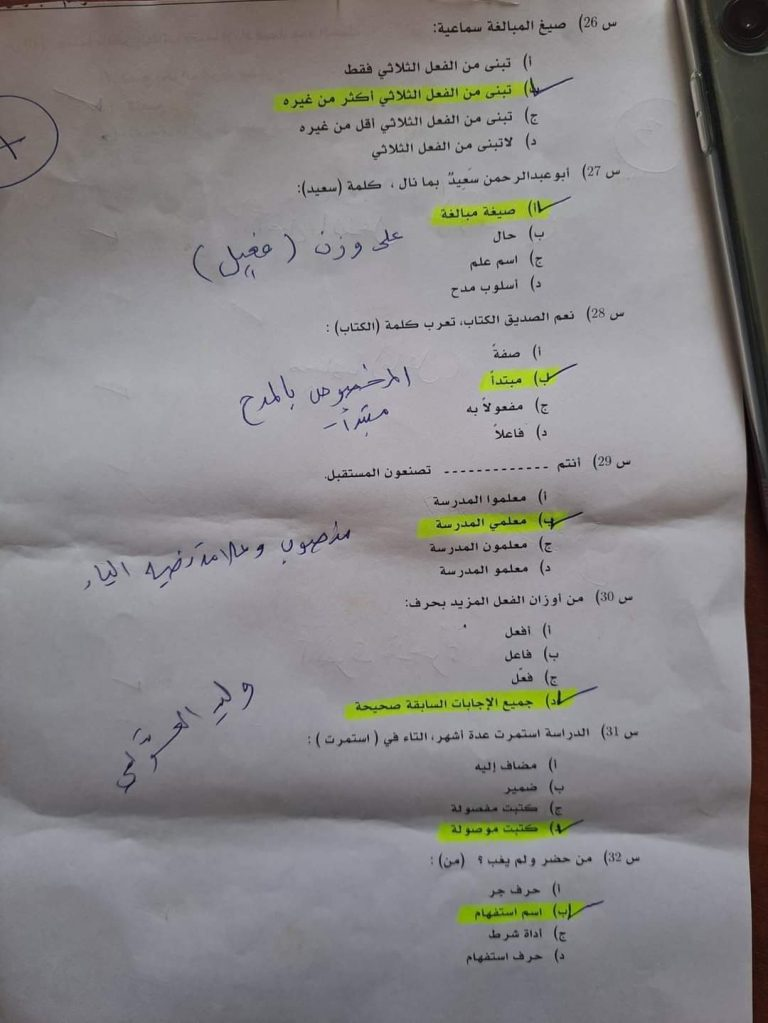 س 26) صيغ المبالغة سماعية:
أ) تبنى من الفعل الثلاثي فقط
ب) تبنى من الفعل الثلاثي أكثر من غيره
ج) تبنى من الفعل الثلاثي أقل من غيره
د) لاتبنى من الفعل الثلاثي
س 27) أبو عبدالرحمن سَعِيدٌ بما نال ، كلمة (سعيد):
أ) صيغة مبالغة
ب) حال
على وزن (فعيل)
ج) اسم علم
د) أسلوب مدح
س 28) نعم الصديق الكتاب، تعرب كلمة (الكتاب) :
أ) صفةً
ب) مبتدأ
المخصوص بالمدح
مبتدأ
ج) مفعولاً به
د) فاعلاً
س 29) أنتم ------------- تصنعون المستقبل.
أ) معلموا المدرسة
ب) معلمي المدرسة
ج) معلمون المدرسة
منصوب وعلامة نصبه الياء
د) معلمو المدرسة
س 30) من أوزان الفعل المزيد بحرف:
أ) أفعل
ب) فاعل
ج) فعّل
د) جميع الإجابات السابقة صحيحة
وليد
س 31) الدراسة استمرت عدة أشهر، التاء في ( استمرت ) :
أ) مضاف إليه
ب) ضمير
ج) كتبت مفصولة
د) كتبت موصولة
س 32) من حضر ولم يغب ؟ (من) :
أ) حرف جر
ب) اسم استفهام
ج) أداة شرط
د) حرف استفهام